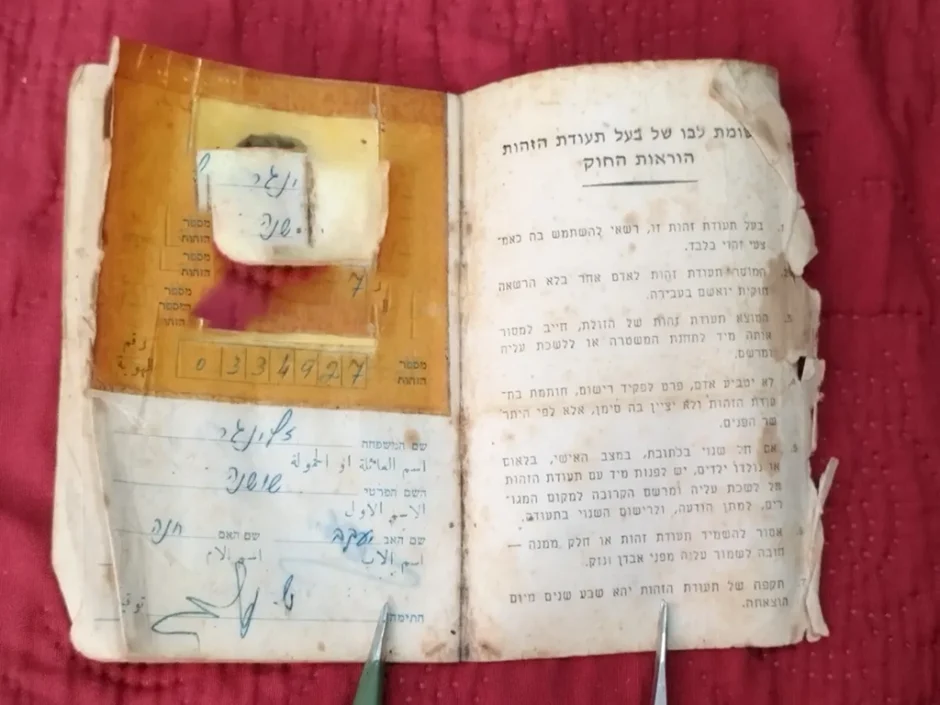 שומת לבו של בעל תעודת הזהות
הוראות החוק
1. בעל תעודת זהות זו, רשאי להשתמש בה לאמ־
צעי זהוי בלבד.
המוסר תעודת זהות לאדם אחר בלא הרשאה
חוקית יואשם בעבירה.
3. המוצא תעודת זהות של הזולת, חייב למסור
אותה מיד לתחנת המשטרה או ללשכת עליה
ומרשם.
לא יטביע אדם, פרט לפקיד רישום, חותמת בת־
עודת הזהות ולא יציין בה סימן, אלא לפי היתר
שר הפנים.
5. אם חל שנוי בכתובת, במצב האישי, בלאום
או נולדו ילדים, יש לפנות מיד עם תעודת הזהות
אל לשכת עליה ומרשם הקרובה למקום המגו־
רים, למתן הודעה, ולרישום השנוי בתעודה.
6. אסור להשמיד תעודת זהות או חלק ממנה —
חובה לשמור עליה מפני אבדן ונזק.
7. תקפה של תעודת הזהות יהא שבע שנים מיום
הוצאתה.
ינגר
שנה
מספר
הזהות
מספר
הזהות
מספר
7
מספר
הזהות
0 3 3 4 9 2 7
رقم
الهوية
שם המשפחה זלינגר
اسم العائلة او الحمولة
השם הפרטי שושנה
الاسم الاول
שם האב יעקב שם האם חנה
اسم الاب اسم الام
החתימה